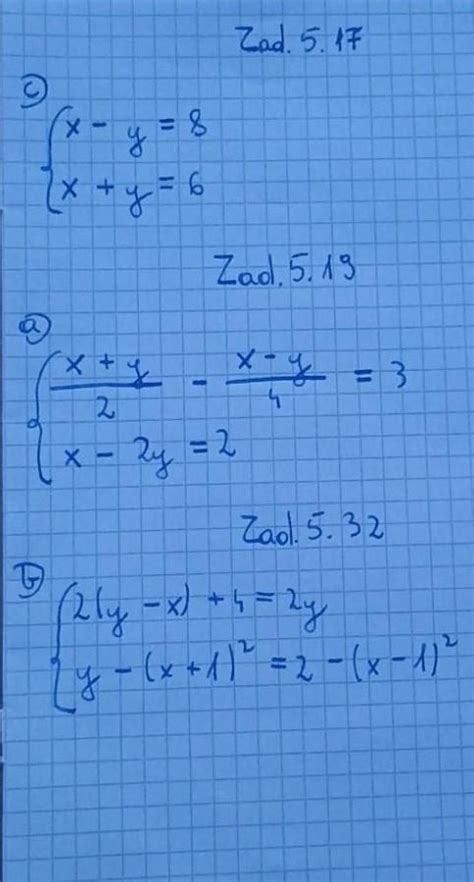 Zad. 5.17
c)
x - y = 8
x + y = 6
Zad. 5.19
a)
x + y / 2 - x - y / 4 = 3
x - 2y = 2
Zad. 5.32
b)
2(y - x) + 4 = 2y
y - (x + 1)² = 2 - (x - 1)²